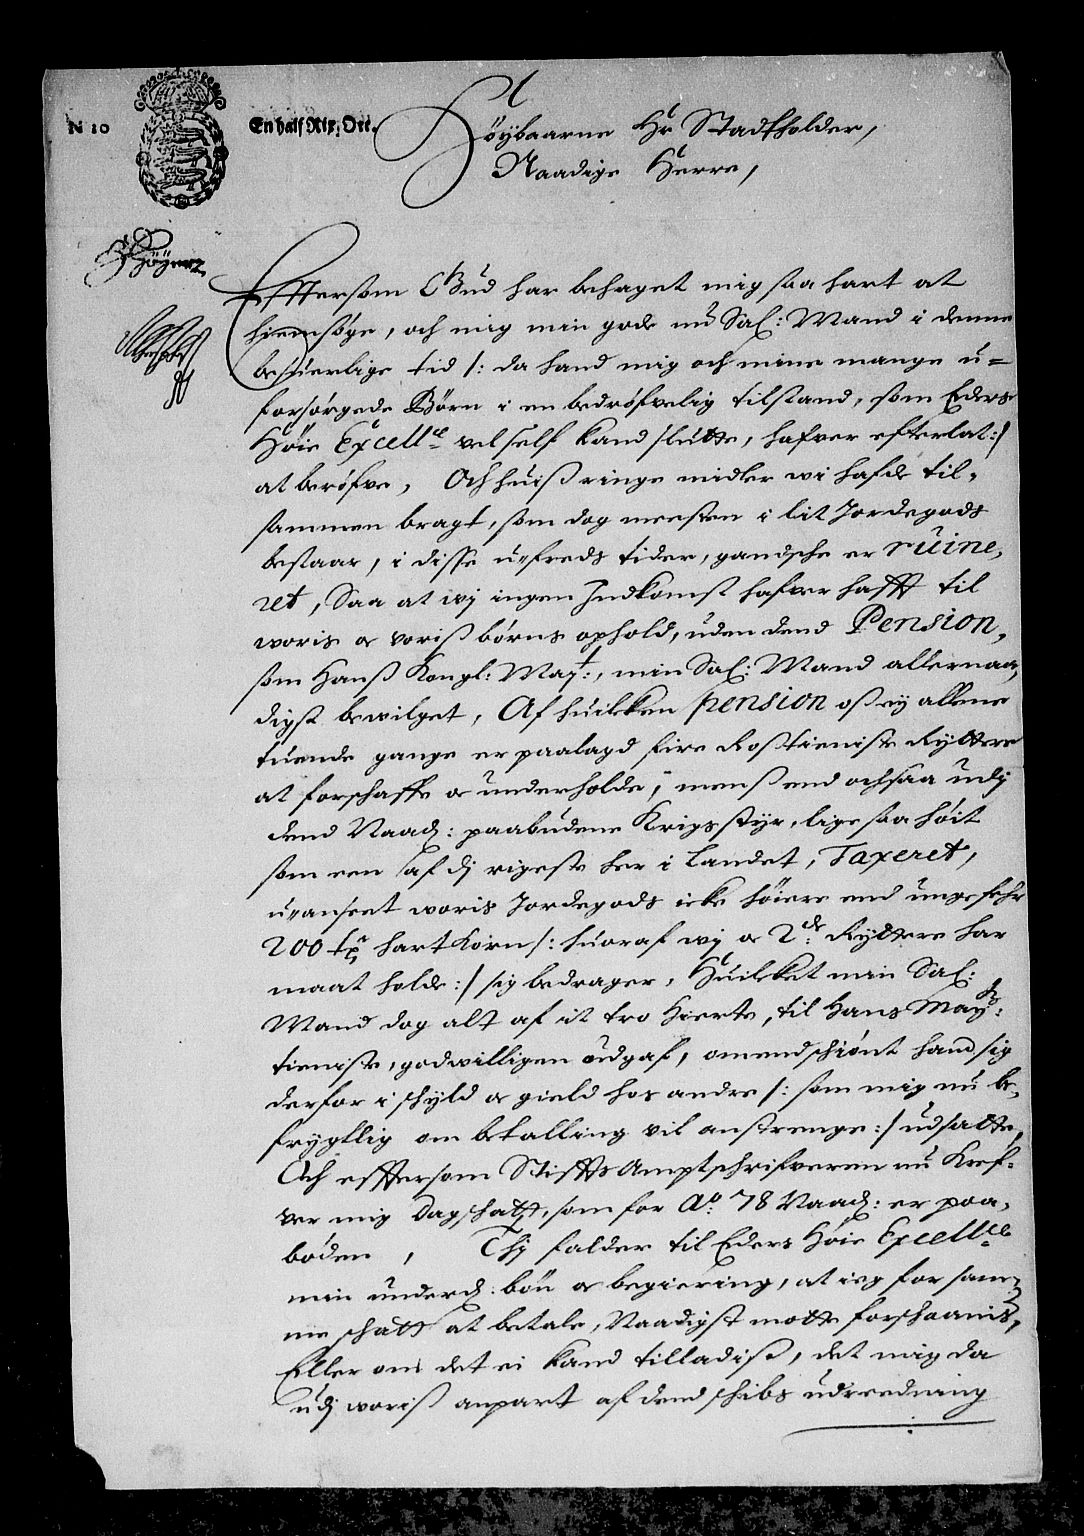 N 10
En half Rix Ort.
Höybaarne Hr Stadtholder,
Naadige Herre,
Efftersom Gud har behaget mig saa hart at
hiemsøge, och mig min gode nu Sal: Mand i denne
besuerlige tid /: da hand mig och mine mange u=
forsørgede Børn i en bedröfvelig tilstand, som Eders
Høie Excell:ce vel self kand slutte, hafver efterlat :/
at berøfve, Och huiss ringe midler wi hafde til-
sammen bragt, som dog meesten i lit Jordegods
bestaar, i disse u-freds tider, gandsche er ruine-
ret, Saa at wj ingen Indkomst hafver hafft til
woris oc voriss børns ophold, uden dend Pension,
som Hanss Kongl: May:t, min Sal: Mand allernaa-
digst bewilget, Af huilcken pension oss ej allene
tuende gange er paalagd fire Rosstieniste Ryttere
at forschaffe oc underholde, menss end ochsaa udj
dend Naad: paabudene Krigsstyr, lige saa höit
som een af dj rigeste her i Landet, Taxeret,
u-anseet woris Jordegods icke høiere end ungefehr
200 tr hartkorn /: huoraf wj oc 2de Ryttere har
maat holde :/ sig bedrager, Huilcket min Sal:
Mand dog alt af it tro Hierte, til Hans May:ts
tieniste, godwilligen udgaf, omendschiönt hand sig
derfor i schyld oc gield hos andre /: som mig nu be-
frygtlig om betalling vil anstrenge :/ udsatte,
Och efftersom Stiffts Amptschrifveren nu kref-
ver mig Dagschatt, som for Ao 78 Naad: er paa-
boden, Thj falder til Eders Høie Excell:ce
min underd: bön oc begiering, at ieg for sam-
me schatt at betale, Naadigst motte forschaanis,
Eller om det ei kand tilladiss, det mig da
udj woriss anpart af dend schibs udreedning